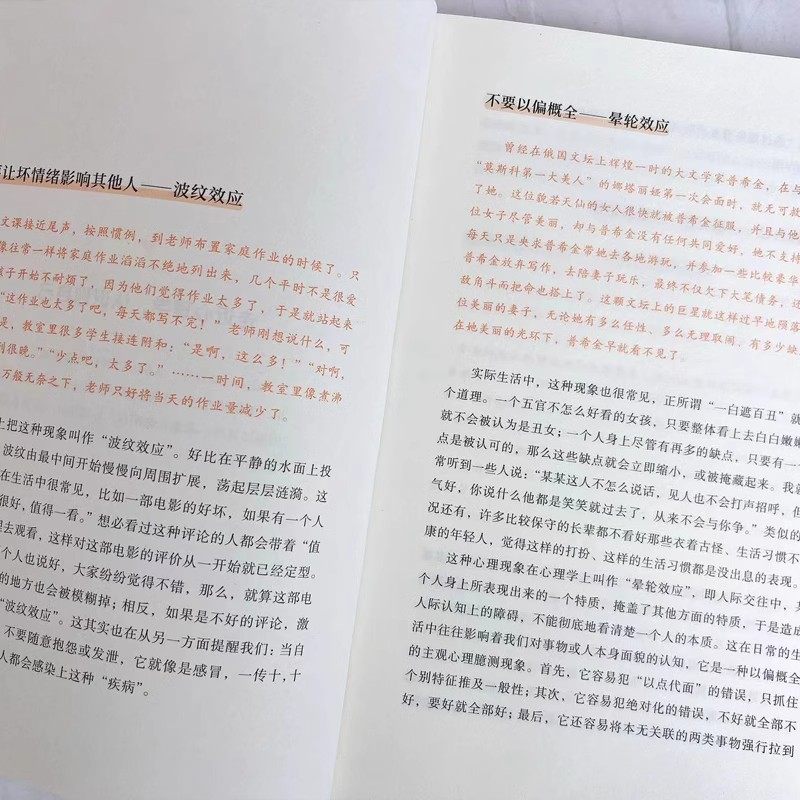 让坏情绪影响其他人——波纹效应
文课接近尾声，按照惯例，到老师布置家庭作业的时候了。只
像往常一样将家庭作业滔滔不绝地列出来，几个平时不是很爱
孩子开始不耐烦了，因为他们觉得作业太多了，于是就站起来
“这作业也太多了吧，每天都写不完！”老师刚想说什么，可
是，教室里很多学生接连附和：“是啊，这么多！”“对啊，
到很晚。”“少点吧，太多了。”……一时间，教室里像煮沸
万般无奈之下，老师只好将当天的作业量减少了。
上把这种现象叫作“波纹效应”。好比在平静的水面上投
波纹由最中间开始慢慢向周围扩展，荡起层层涟漪。这
在生活中很常见，比如一部电影的好坏，如果有一个人
很好，值得一看。”想必看过这种评论的人都会带着“值
想去观看，这样对这部电影的评价从一开始就已经定型。
个人也说好，大家纷纷觉得不错，那么，就算这部电
的地方也会被模糊掉；相反，如果是不好的评论，激
“波纹效应”。这其实也在从另一方面提醒我们：当自
，不要随意抱怨或发泄，它就像是感冒，一传十，十
人都会感染上这种“疾病”。
不要以偏概全——晕轮效应
曾经在俄国文坛上辉煌一时的大文学家普希金，在与
“莫斯科第一大美人”的娜塔丽娅第一次会面时，就无可救
了她。这位貌若天仙的女人很快就被普希金征服，并且与他
位女子尽管美丽，却与普希金没有任何共同爱好，她不支持
每天只是央求普希金带她去各地游玩，并参加一些比较豪华
普希金放弃写作，去陪妻子玩乐，最终不仅欠下大笔债务，还
敌角斗而把命也搭上了。这颗文坛上的巨星就这样过早地陨落
位美丽的妻子，无论她有多么任性、多么无理取闹、有多少缺
在她美丽的光环下，普希金早就看不见了。
实际生活中，这种现象也很常见，正所谓“一白遮百丑”就
个道理。一个五官不怎么好看的女孩，只要整体看上去白白嫩嫩
就不会被认为是丑女；一个人身上尽管有再多的缺点，只要有一
点是被认可的，那么这些缺点就会立即缩小，或被掩藏起来。我就
常听到一些人说：“某某这人不怎么说话，见人也不会打声招呼，但
气好，你说什么他都是笑笑就过去了，从来不会与你争。”类似的
况还有，许多比较保守的长辈都不看好那些衣着古怪、生活习惯不
康的年轻人，觉得这样的打扮、这样的生活习惯都是没出息的表现。
这种心理现象在心理学上叫作“晕轮效应”，即人际交往中，
个人身上所表现出来的一个特质，掩盖了其他方面的特质，于是造成
人际认知上的障碍，不能彻底地看清楚一个人的本质。这在日常的生
活中往往影响着我们对事物或人本身面貌的认知，它是一种以偏概全
的主观心理臆测现象。首先，它容易犯“以点代面”的错误，只抓住
个别特征推及一般性；其次，它容易犯绝对化的错误，不好就全部不
好，要好就全部好；最后，它还容易将本无关联的两类事物强行拉到